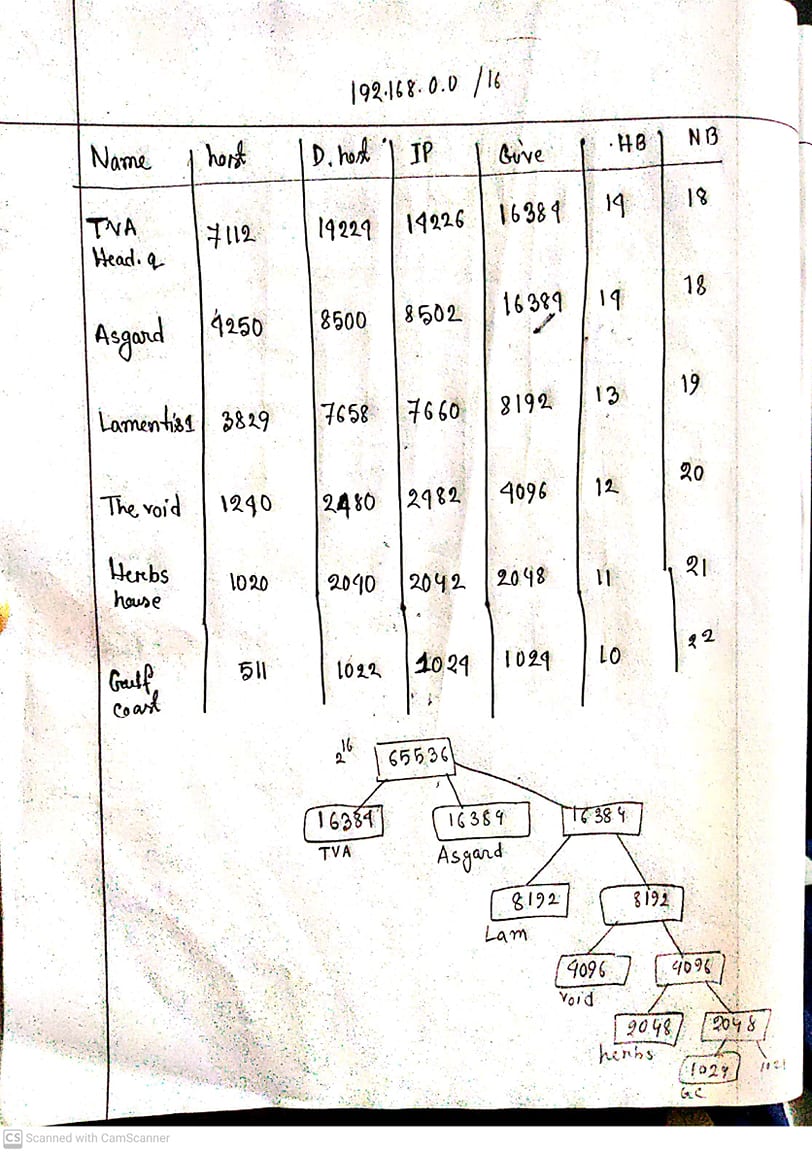 192.168.0.0 /16
Name host D. host IP Give HB NB
TVA Head.q 7112 14224 14226 16384 14 18
Asgard 4250 8500 8502 16384 14 18
Lamentis1 3829 7658 7660 8192 13 19
The void 1240 2480 2482 4096 12 20
Herbs house 1020 2040 2042 2048 11 21
Gulf coast 511 1022 1024 1024 10 22
2^16 65536
16384 16384 16384
TVA Asgard
8192 8192
Lam
4096 4096
void
2048 2048
herbs
1024
GC
CS Scanned with CamScanner